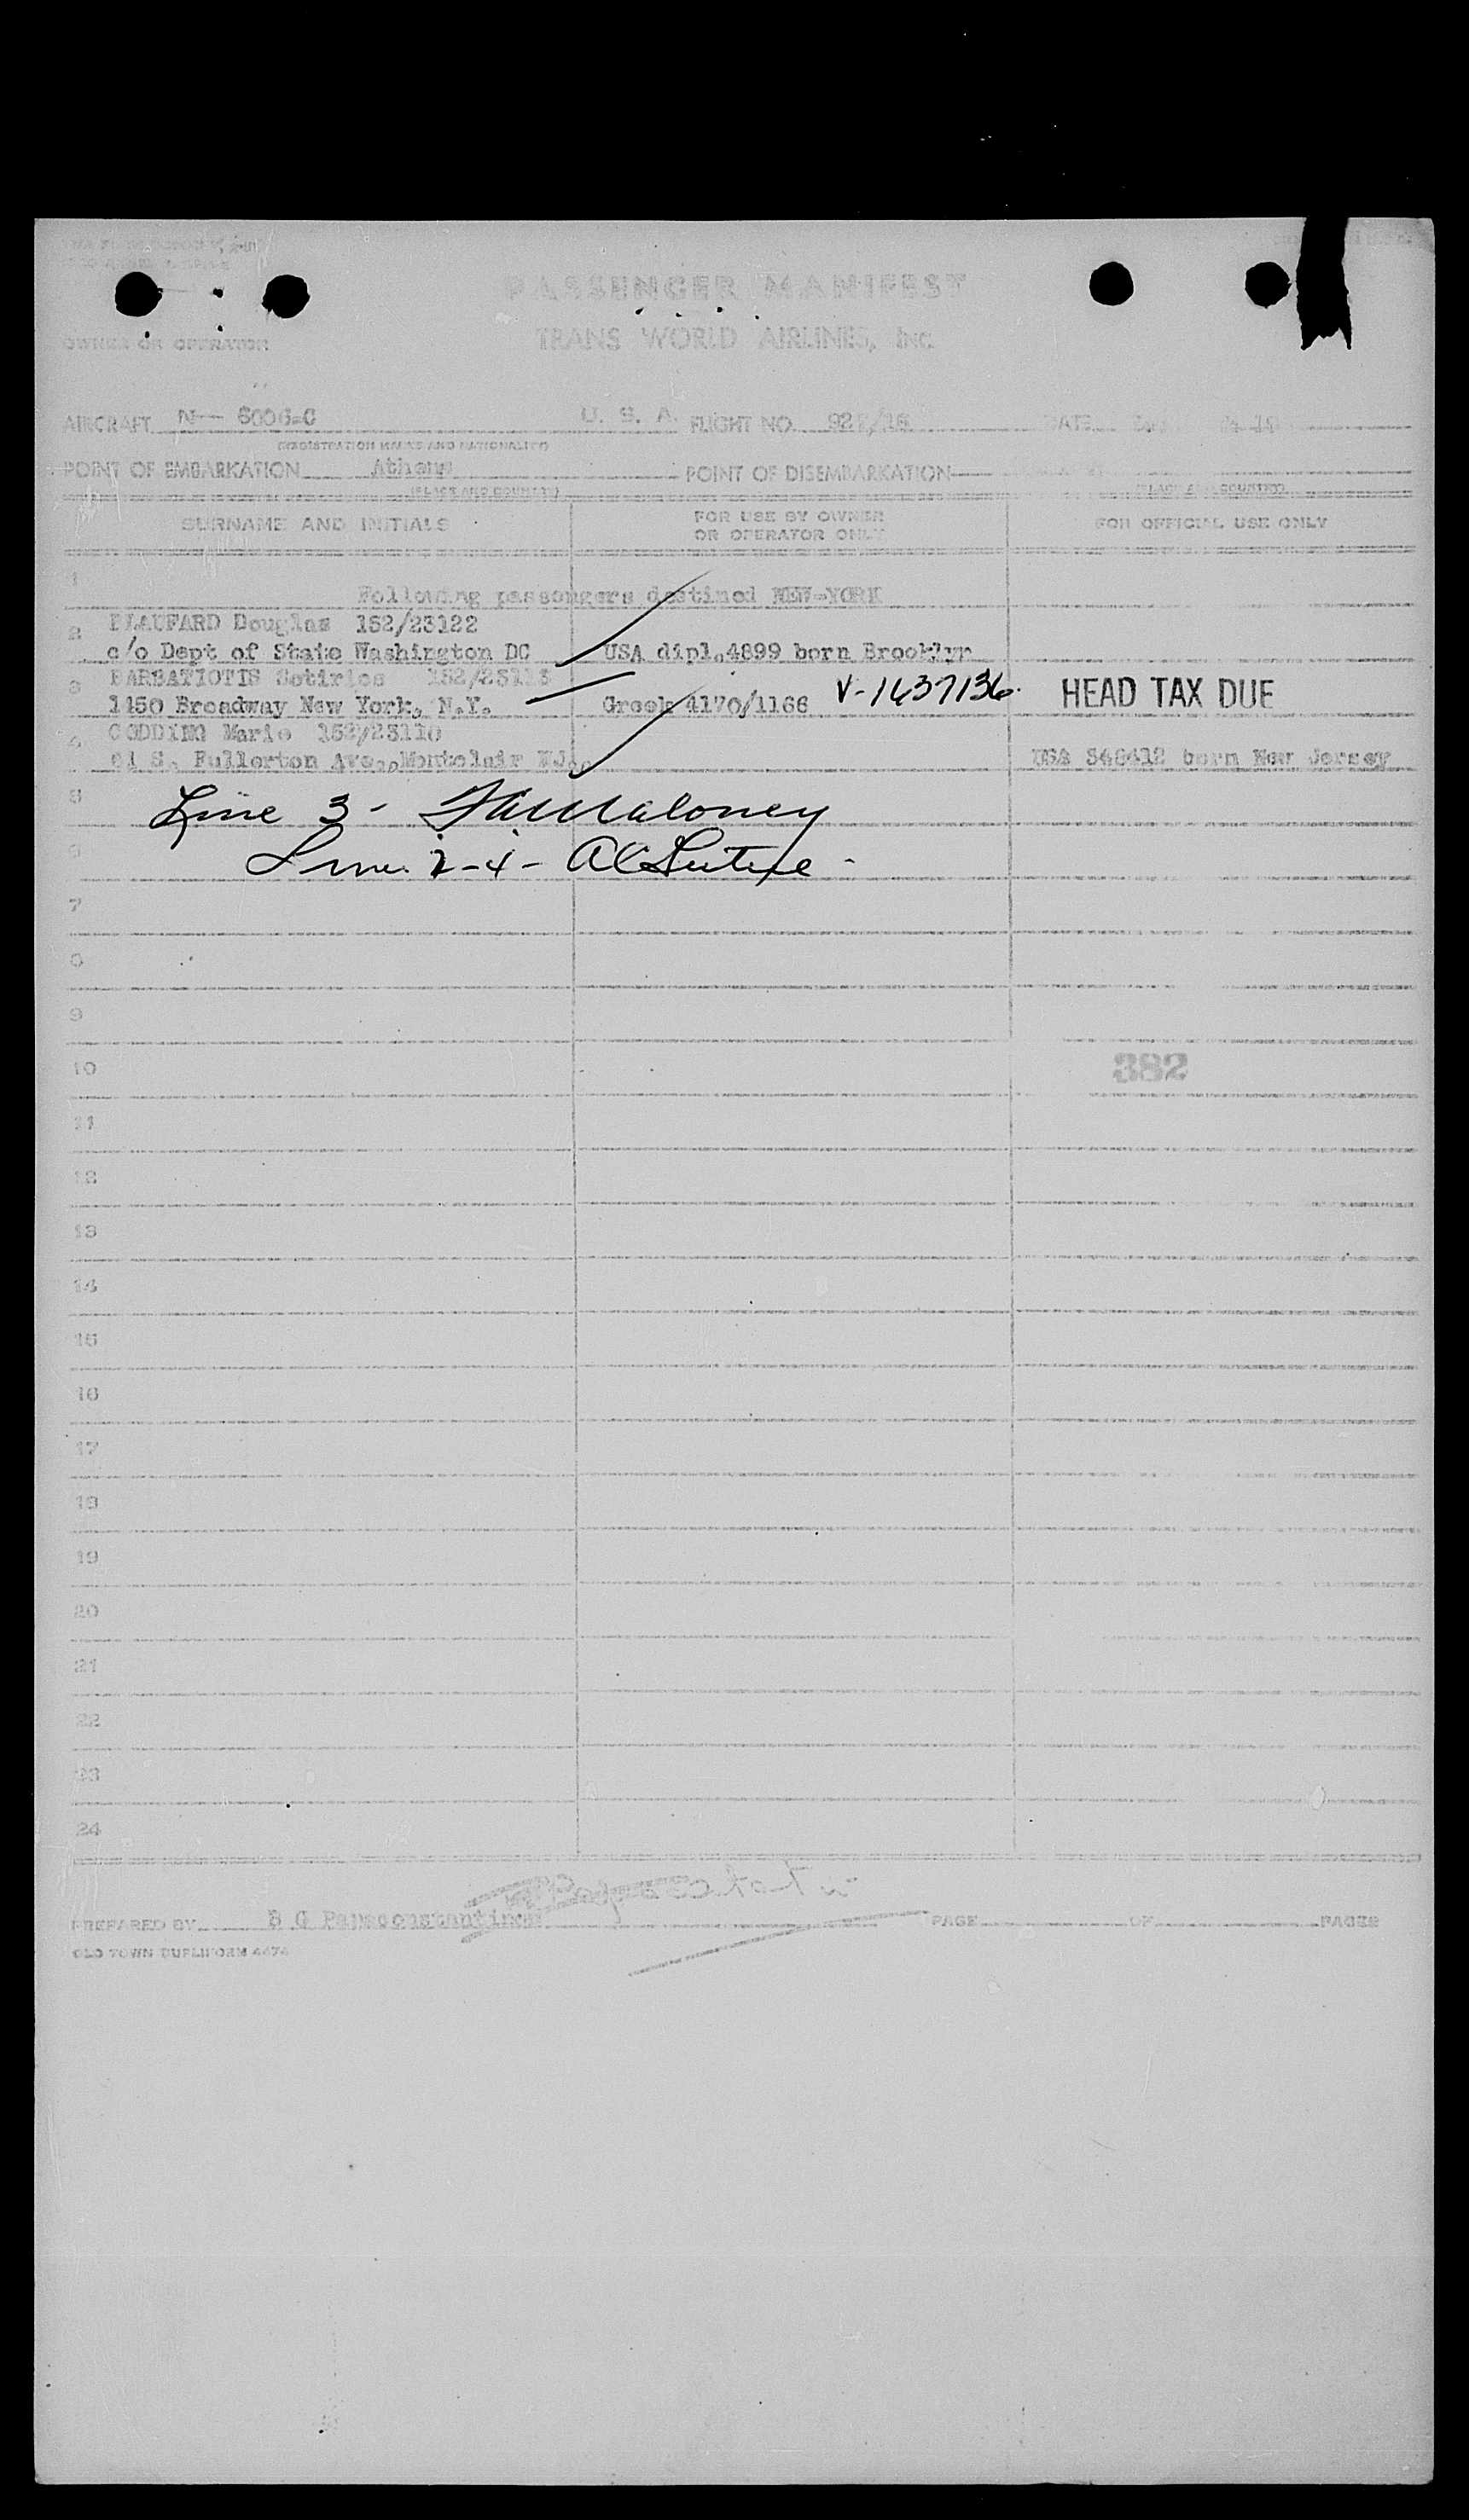 PASSENGER MANIFEST
TRANS WORLD AIRLINES, Inc.
OWNER OR OPERATOR
AIRCRAFT N— 6006-C U. S. A. FLIGHT NO.
(REGISTRATION MARKS AND NATIONALITY)
POINT OF EMBARKATION Athens POINT OF DISEMBARKATION
(PLACE AND COUNTRY) (PLACE AND COUNTRY)
SURNAME AND INITIALS FOR USE BY OWNER OR OPERATOR ONLY FOR OFFICIAL USE ONLY
1 Following passengers destined NEW-YORK
2 BLAUFARD Douglas 152/23122
c/o Dept of State Washington DC USA dipl.4899 born Brooklyn
3 BARBATIOTIS Sotirios
1150 Broadway New York, N.Y. Greek 4170/1166 V-1637136. HEAD TAX DUE
4 GODDING Marie 152/23110
61 S. Fullerton Ave., Montclair NJ. USA 348412 born New Jersey
5 Line 3 - Maloney
6 Line 2-4 -
7
8
9
10 382
11
12
13
14
15
16
17
18
19
20
21
22
23
24
PREPARED BY B G Papaconstantinou PAGE OF PAGES
OLD TOWN DUPLIFORM 4474